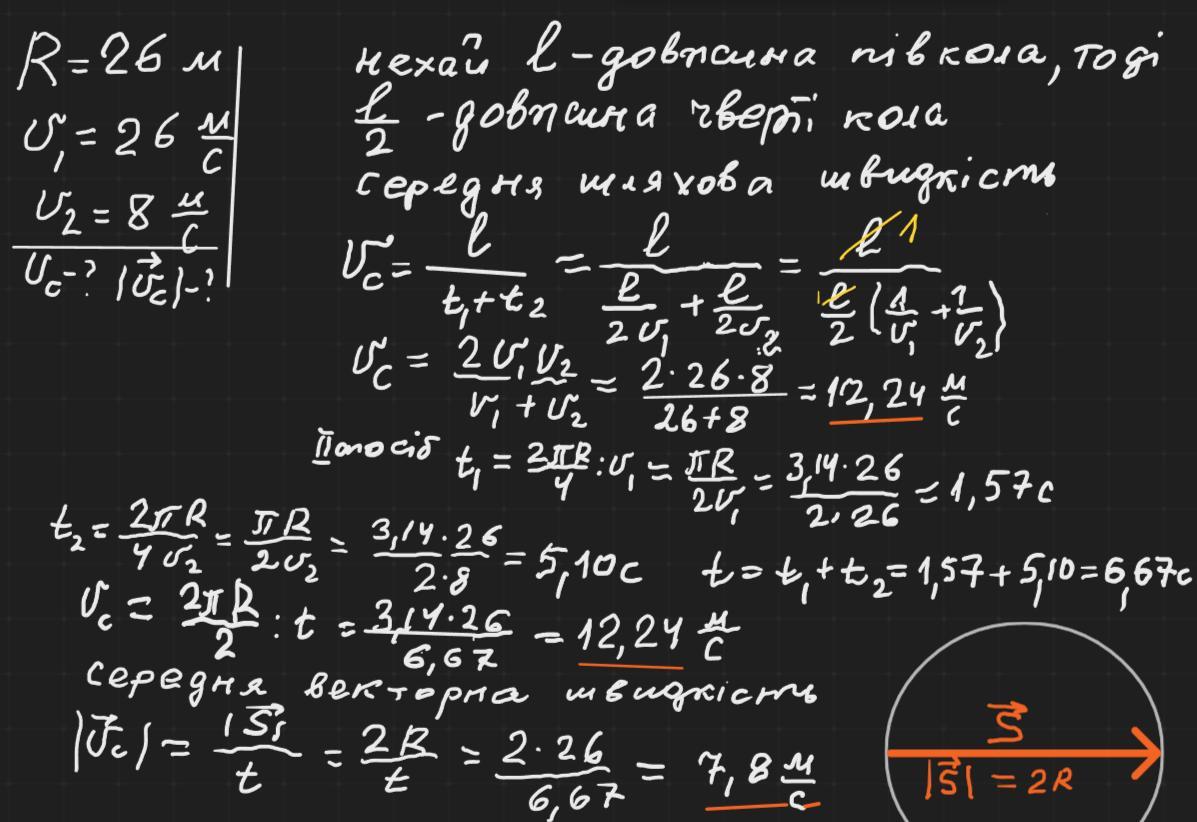 R = 26 м
υ₁ = 26 м/с
υ₂ = 8 м/с
υc - ? |υ⃗c| - ?
нехай l - довжина півкола, тоді
l/2 - довжина чверті кола
середня шляхова швидкість
υc = l/(t₁ + t₂) = l/(l/2υ₁ + l/2υ₂) = l 1/(1 l/2 (1/υ₁ + 1/υ₂))
υc = 2υ₁υ₂/(υ₁ + υ₂) = 2·26·8/(26+8) = 12,24 м/с
II спосіб t₁ = 2πR/4 : υ₁ = πR/2υ₁ = 3,14·26/2·26 = 1,57 с
t₂ = 2πR/4υ₂ = πR/2υ₂ = 3,14·26/2·8 = 5,10 с t = t₁ + t₂ = 1,57 + 5,10 = 6,67 с
υc = 2πR/2 : t = 3,14·26/6,67 = 12,24 м/с
середня векторна швидкість
|υ⃗c| = |S⃗|/t = 2R/t = 2·26/6,67 = 7,8 м/с
S⃗
|S⃗| = 2R